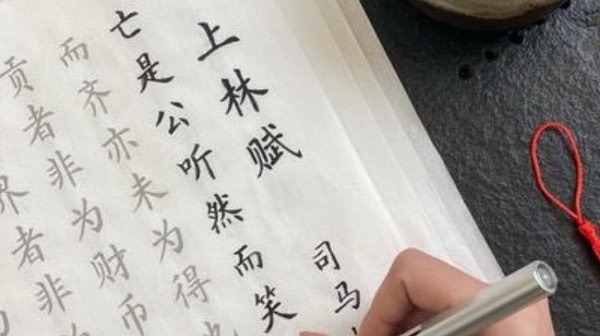 上林赋 司马
亡是公听然而笑
而齐亦未为得
贡者非为财币
界者非